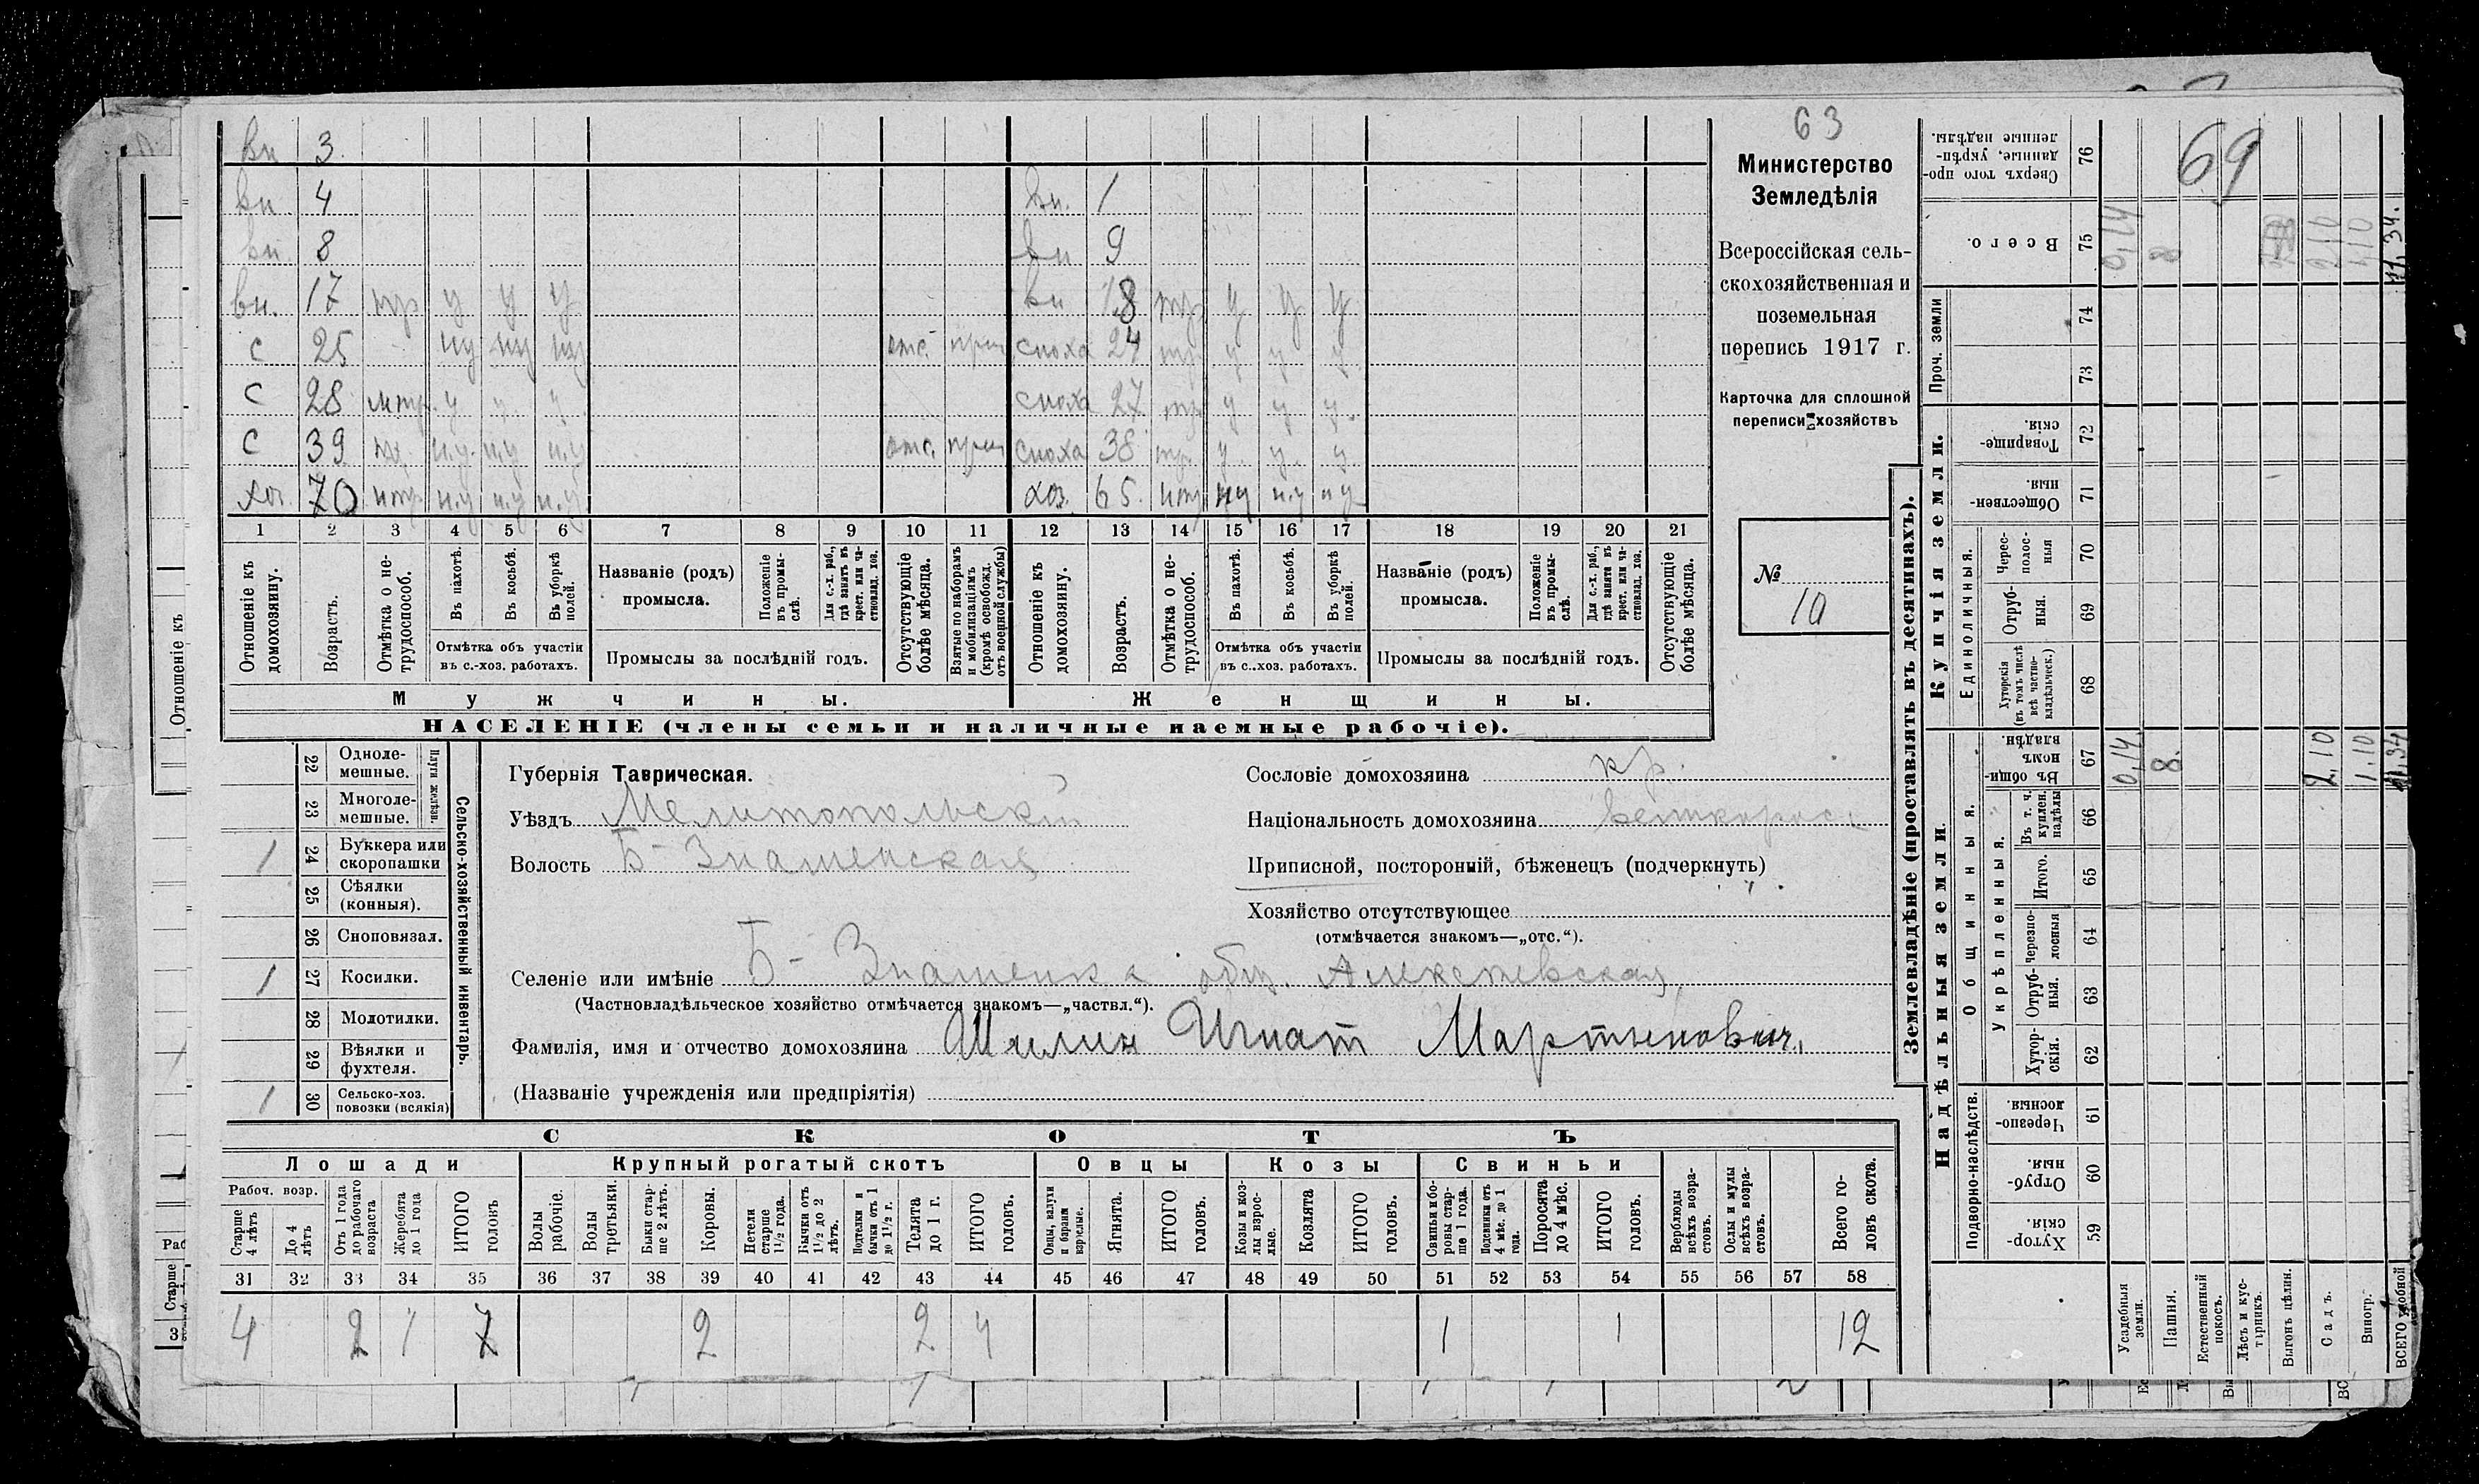 63
69
вн 3
вн. 4 вн. 1
вн 8 вн 9
вн. 17 тр у у у вн 18 тр у у у
с 25 ну ну ну отс. приз сноха 24 тр. у у у
с 28 мтр. у у. у. сноха 27 тр у у у.
с 39 н.у. н.у н.у отс. приз сноха 38 тр. у. у. у
хоз. 70 нтр. н.у н.у н.у хоз. 65. нтр ну н.у н у
1 2 3 4 5 6 7 8 9 10 11 12 13 14 15 16 17 18 19 20 21
Отношеніе къ домохозяину.
Возрастъ.
Отмѣтка о не-
трудоспособ.
Въ пахотѣ.
Въ косьбѣ.
Въ уборкѣ
полей.
Отмѣтка объ участіи
въ с.-хоз. работахъ.
Названіе (родъ)
промысла.
Положеніе
въ промы-
слѣ.
Для с.-х. раб.,
гдѣ занятъ въ
крест. или ча-
стновлад. хоз.
Промыслы за послѣдній годъ.
Отсутствующіе
болѣе мѣсяца.
Взятые по наборамъ
и мобилизаціямъ
(кромѣ освобожд.
отъ военной службы)
Отношеніе къ
домохозяину.
Возрастъ.
Отмѣтка о не-
трудоспособ.
Въ пахотѣ.
Въ косьбѣ.
Въ уборкѣ
полей.
Отмѣтка объ участіи
въ с..хоз. работахъ.
Названіе (родъ)
промысла.
Положеніе
въ промы-
слѣ.
Для с.-х. раб.,
гдѣ занята въ
крест. или ча-
стновлад. хоз.
Промыслы за послѣдній годъ.
Отсутствующіе
болѣе мѣсяца.
Мужчины. Женщины.
НАСЕЛЕНІЕ (члены семьи и наличные наемные рабочіе).
Министерство
Земледѣлія
Всероссійская сель-
скохозяйственная и
поземельная
перепись 1917 г.
Карточка для сплошной
переписи хозяйствъ
№
10
22 Одноле-
мешные.
23 Многоле-
мешные.
Плуги желѣзн.
1 24 Буккера или
скоропашки
25 Сѣялки
(конныя).
26 Сноповязал.
1 27 Косилки.
28 Молотилки.
29 Вѣялки и
фухтеля.
1 30 Сельско-хоз.
повозки (всякія)
Сельско-хозяйственный инвентарь.
Губернія Таврическая.
Уѣздъ Мелитопольскій
Волость Б-Знаменская
Сословіе домохозяина кр.
Національность домохозяина великоросс
Приписной, посторонній, бѣженецъ (подчеркнуть)
Хозяйство отсутствующее
(отмѣчается знакомъ—„отс.“).
Селеніе или имѣніе Б-Знаменка общ. Алексѣевская
(Частновладѣльческое хозяйство отмѣчается знакомъ—„частвл.“).
Фамилія, имя и отчество домохозяина Шилин Игнат Мартынович.
(Названіе учрежденія или предпріятія)
СКОТЪ
Лошади Крупный рогатый скотъ Овцы Козы Свиньи
Рабоч. возр.
Старше
4 лѣтъ
До 4
лѣтъ
Отъ 1 года
до рабочаго
возраста
Жеребята
до 1 года
ИТОГО
головъ
Волы
рабочіе.
Волы
третьяки.
Быки стар-
ше 2 лѣтъ.
Коровы.
Нетели
старше
1½ года.
Бычки отъ
1½ до 2
лѣтъ.
Подтелки и
бычки отъ 1
до 1½ г.
Телята
до 1 г.
ИТОГО
головъ.
Овцы, валухи
и бараны
взрослые.
Ягнята.
ИТОГО
головъ.
Козы и коз-
лы взрос-
лые.
Козлята
ИТОГО
головъ.
Свиньи и бо-
ровы стар-
ше 1 года.
Подсвинки отъ
4 мѣс. до 1
года.
Поросята
до 4 мѣс.
ИТОГО
головъ.
Верблюды
всѣхъ возра-
стовъ.
Ослы и мулы
всѣхъ возра-
стовъ.
Всего го-
ловъ скота.
31 32 33 34 35 36 37 38 39 40 41 42 43 44 45 46 47 48 49 50 51 52 53 54 55 56 57 58
4 2 1 7 2 2 4 1 1 12
Землевладѣніе (проставлять въ десятинахъ).
Надѣльныя земли.
Купчія земли.
Проч. земли
Подворно-наслѣдств.
Общинныя.
Укрѣпленныя.
Единоличныя.
Хутор-
скія. 59
Отруб-
ныя. 60
Черезпо-
лосныя 61
Хутор-
скія. 62
Отруб-
ныя. 63
Черезпо-
лосныя 64
Итого. 65
Въ т. ч.
куплен.
надѣлы 66
Въ общин-
номъ
владѣн. 67
Хуторскія
(въ томъ числѣ
всѣ частно-
владѣльческ.) 68
Отруб-
ныя. 69
Черес-
полос-
ныя 70
Обществен-
ныя. 71
Товарище-
скія. 72
73
74
Всего. 75
Сверхъ того про-
данные, укрѣп-
ленные надѣлы. 76
Усадебныя
земли. 0,14 0,14
Пашня. 8. 8
Естественный
покосъ.
Лѣсъ и кус-
тарникъ.
Выгонъ цѣлин.
Садъ. 2,10 2,10
Виногр. 1.10 1,10
ВСЕГО удобной 11,34 11,34.
Отношеніе къ
Старше